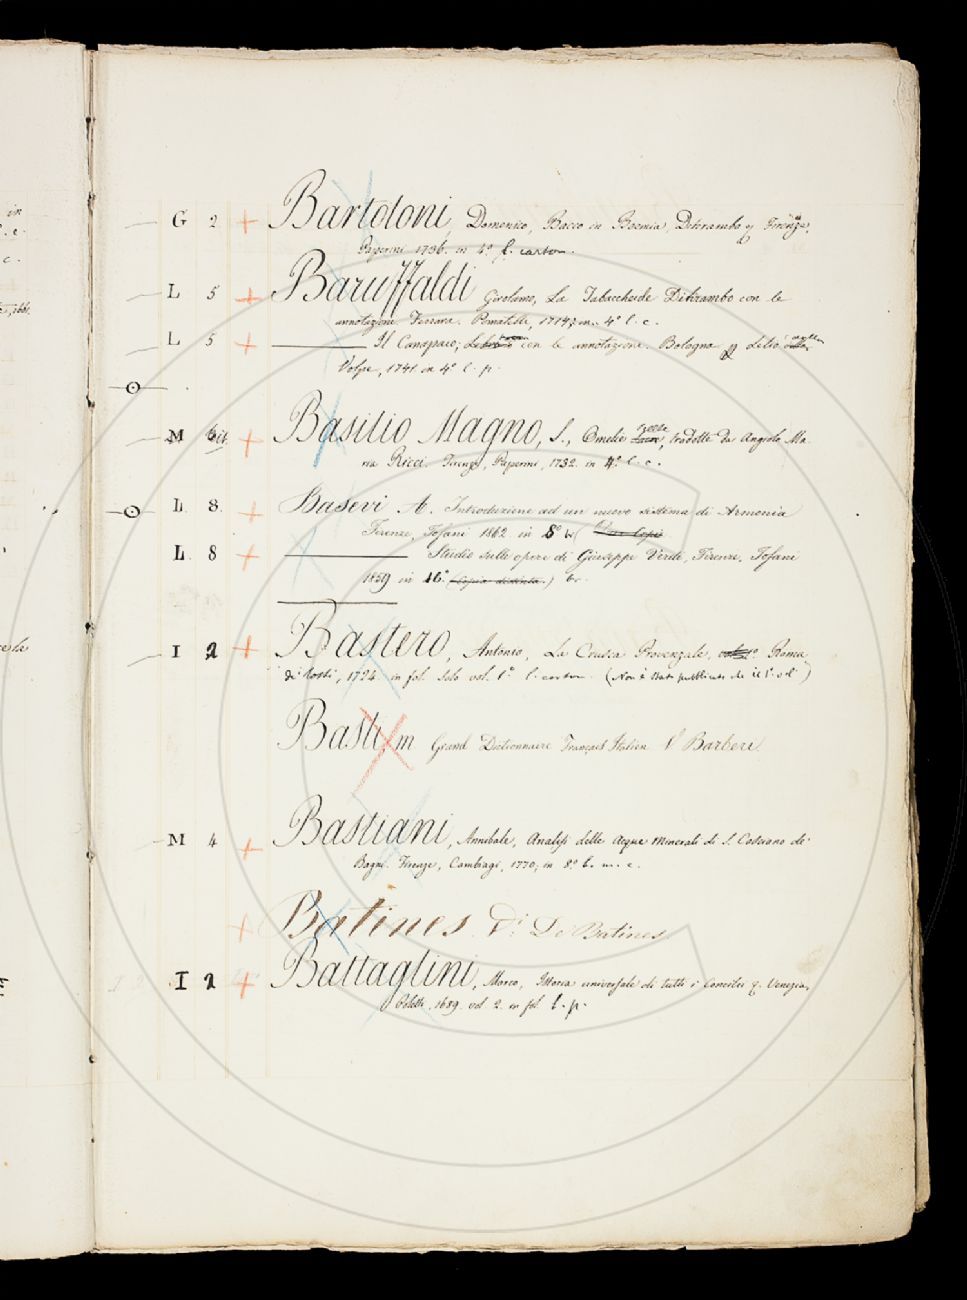 G 2 + Bartoloni, Domenico, Bacco in Boemia, Ditirambo &c. Firenze,
Paperini 1736. in 4º l. carton.
L 5 + Baruffaldi Girolamo, La Tabaccheide Ditirambo con le
annotazione. Ferrara. Pomatelli, 1714, in 4º l. c.
L 5 + Il Canapaio, con le annotazione. Bologna Lelio dalla
Volpe, 1741 in 4º l. p.
M bis + Basilio Magno, S., Omelie, tradotte da Angiolo Ma
ria Ricci. Firenze, Paperini, 1732. in 4º l. c.
L. 8. + Basevi A. Introduzione ad un nuovo sistema di Armonia
Firenze, Tofani 1862 in 8º br
L. 8 + Studio sulle opere di Giuseppe Verdi, Firenze, Tofani
1859 in 16.º br.
I 2 + Bastero, Antonio, La Crusca Provenzale, Roma
de' Rossi, 1724. in fol. Solo vol. 1º l. carton. (Non è stato pubblicato che il 1º vol)
Bastim Grand Dictionnaire Français Italien V. Barberi
M 4 + Bastiani, Annibale, Analisi delle Acque Minerali di S. Casciano de'
Bagni. Firenze, Cambiagi, 1770, in 8º b. m. c.
+ Batines V. De Batines
I 2 + Battaglini, Marco, Istoria universale di tutti i Concilii &. Venezia,
Poletti, 1689. vol. 2. in fol. l. p.